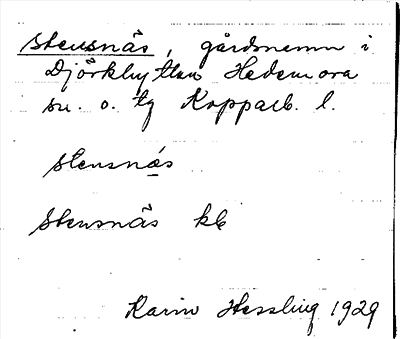 Stensnäs, gårdsnamn i
Djörkhyttan Hedemora
sn. o. tg Kopparb. l.
stensnäs
Stensnäs kb
Karin Hessling 1929